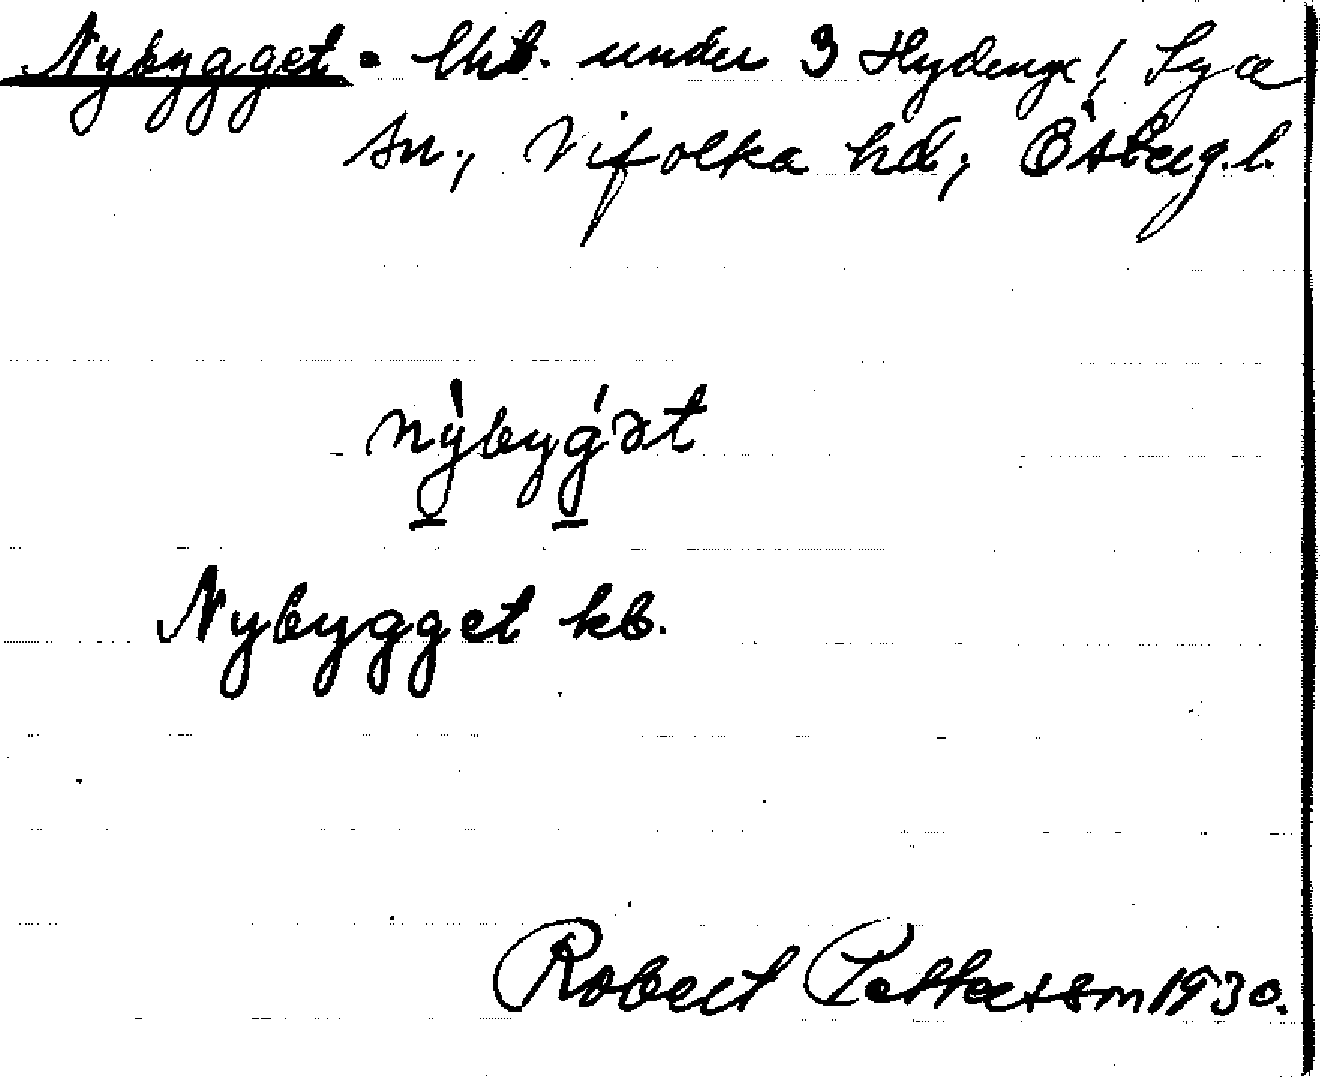 Nybygget = lht. under 3 Hydinge! Sya
sn., Vifolka hd, Östergl.
nýbyǵət
Nybygget kb.
Robert Pettersson 1930.